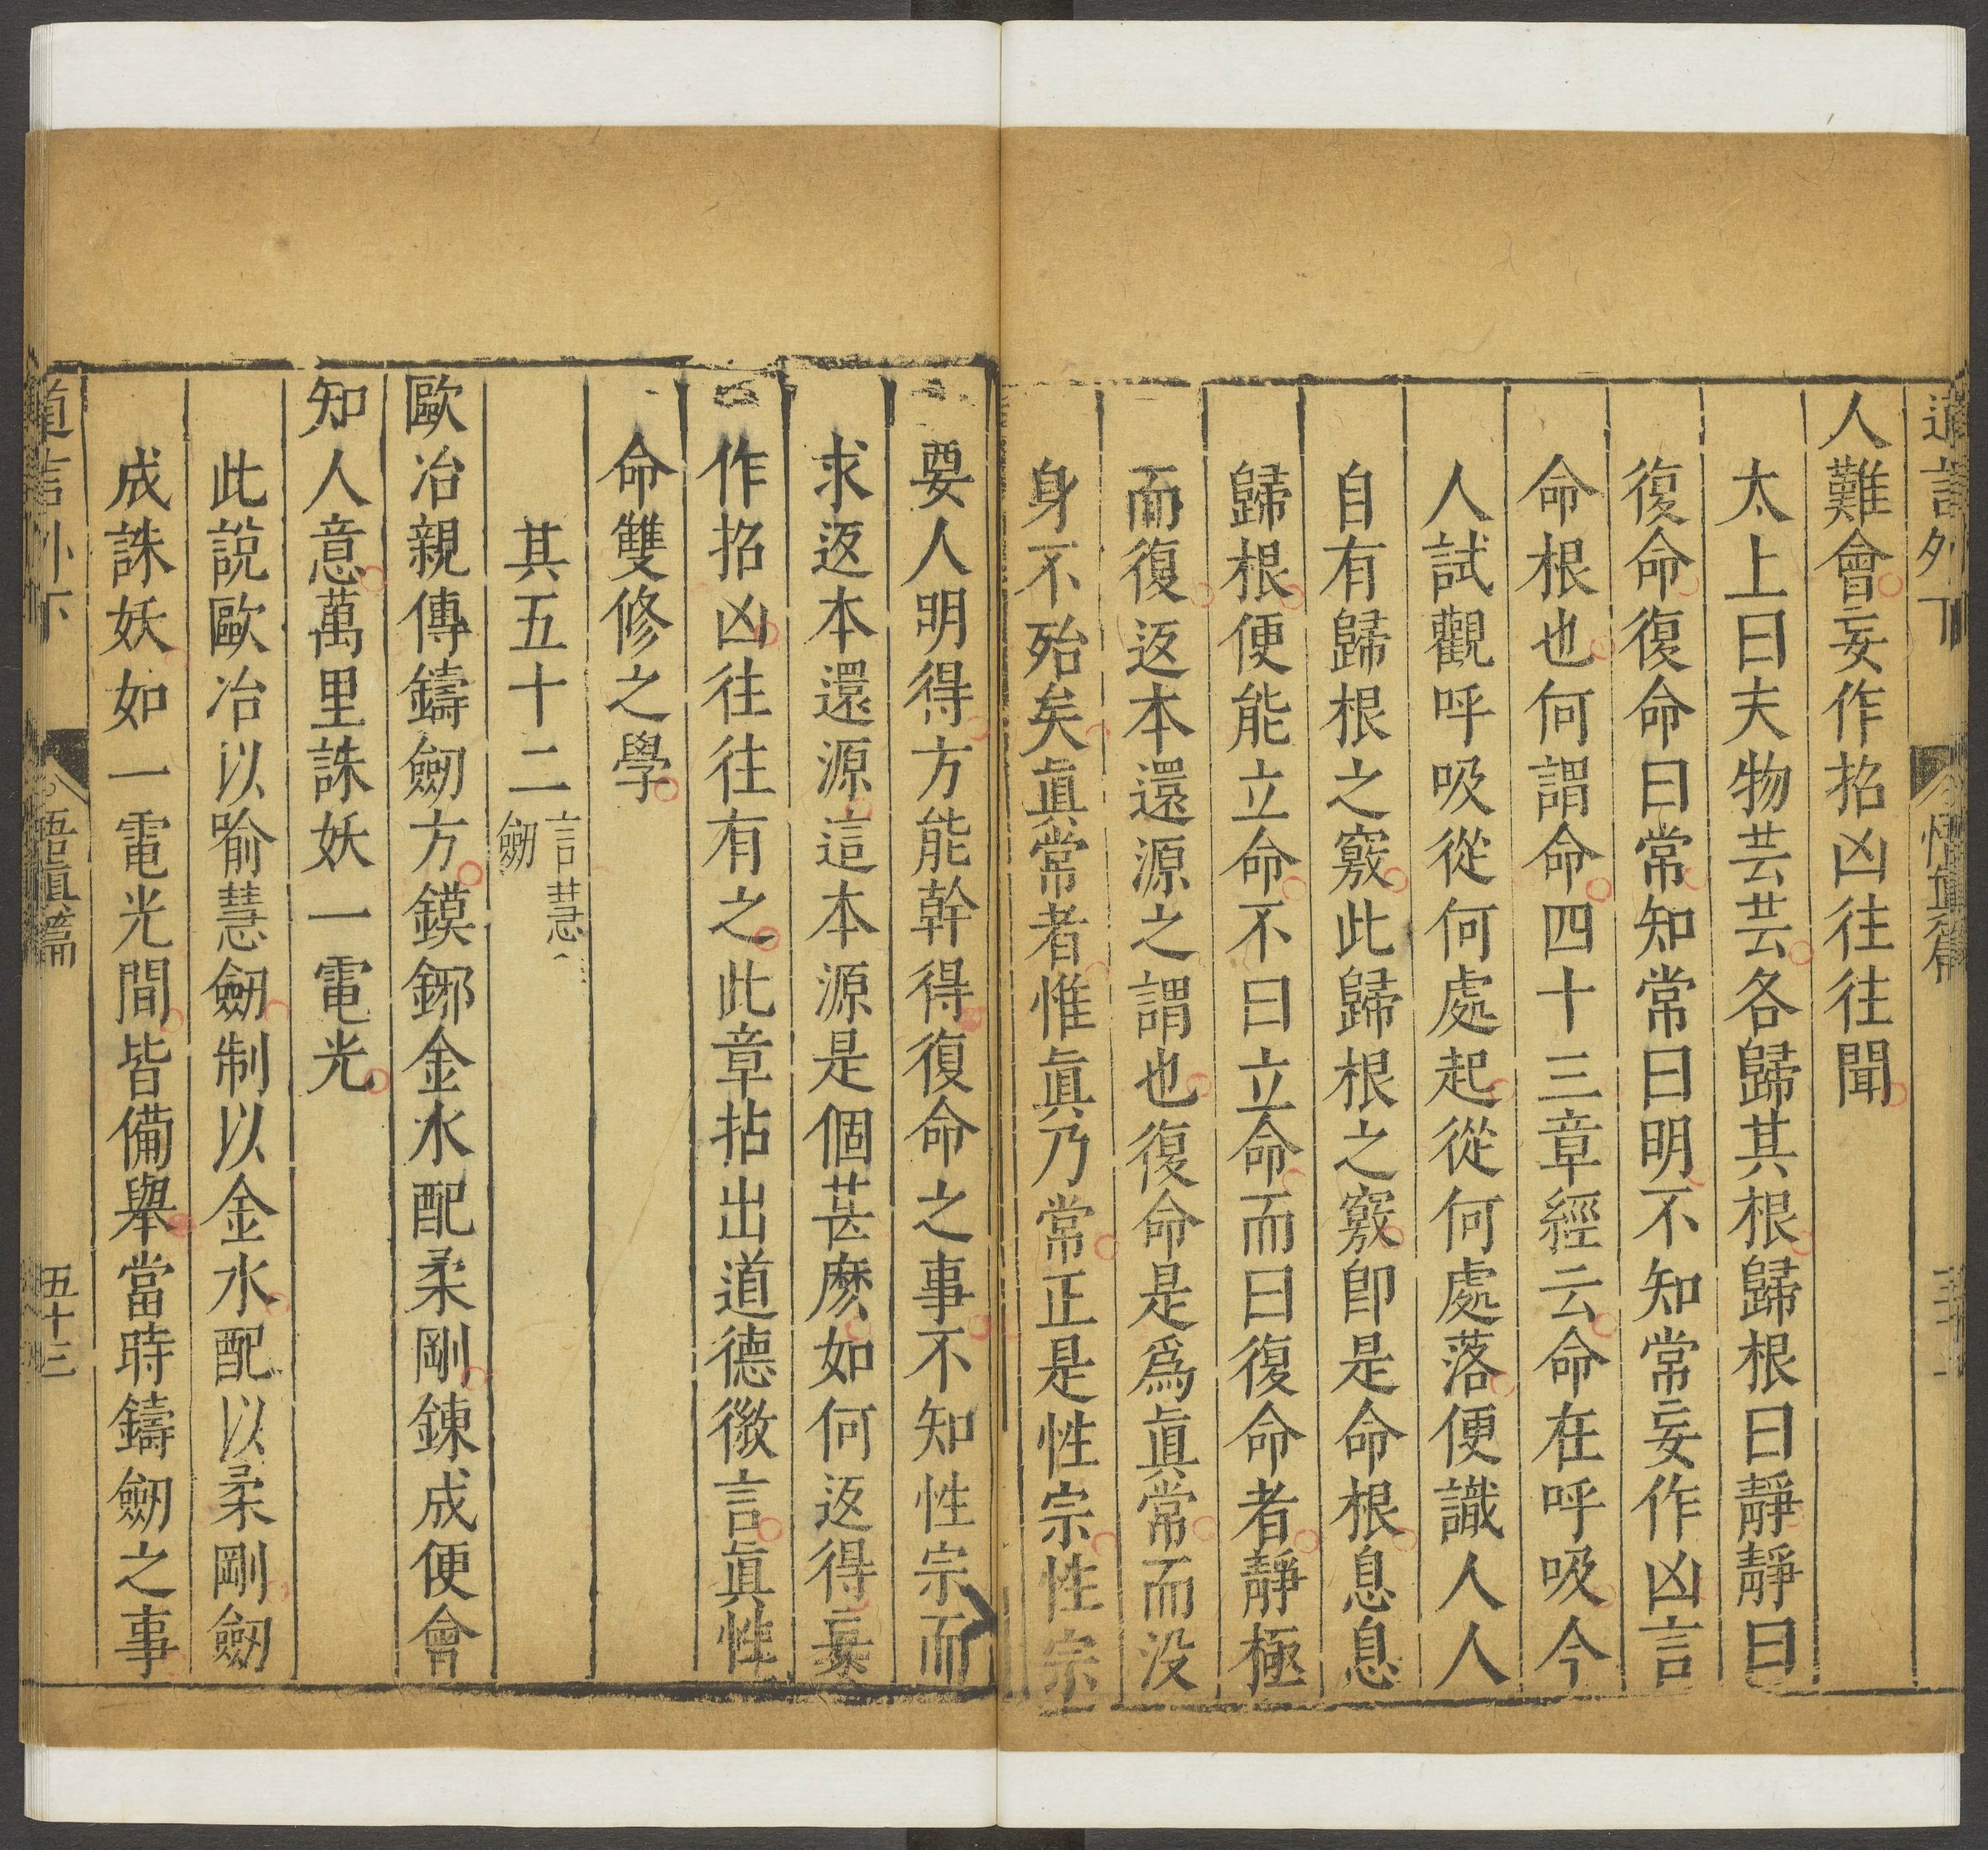 人難會妄作招凶往往聞
太上曰夫物芸芸各歸其根歸根曰靜靜曰
復命復命曰常知常曰明不知常妄作凶言
命根也何謂命四十三章經云命在呼吸今
人試觀呼吸從何處起從何處落便識人人
自有歸根之竅此歸根之竅即是命根息息
歸根便能立命不曰立命而曰復命者靜極
而復返本還源之謂也復命是爲眞常而没
身不殆矣眞常者惟眞乃常正是性宗性宗
要人明得方能幹得復命之事不知性宗而
求返本還源這本源是個甚麽如何返得妄
作招凶往往有之此章拈出道德微言眞性
命雙修之學
其五十二 言慧劒
歐冶親傳鑄劒方鏌鎁金水配柔剛鍊成便會
知人意萬里誅妖一電光
此說歐冶以喻慧劒制以金水配以柔剛劒
成誅妖如一電光間皆備舉當時鑄劒之事
道言外下 悟眞篇 五十三